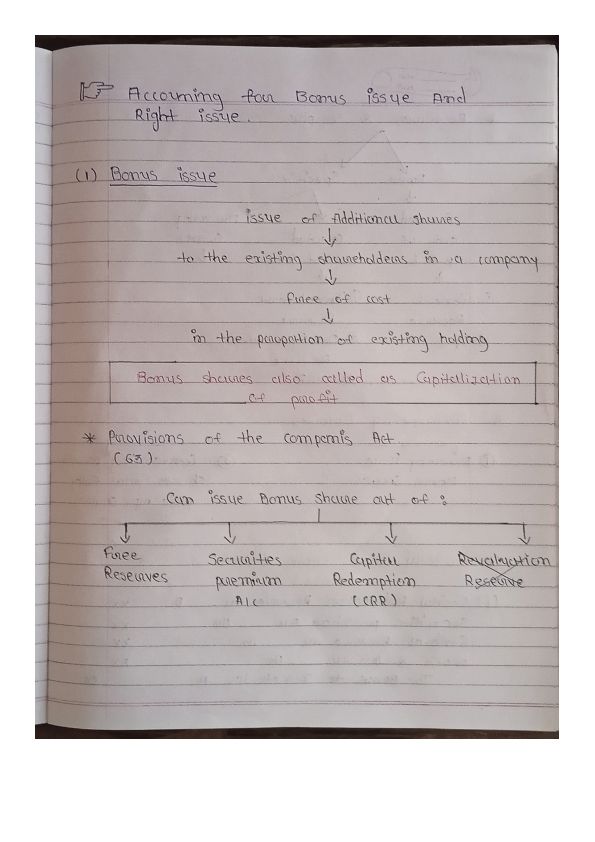 Accounting for Bonus issue And
Right issue.
(1) Bonus issue
issue of Additional shares
to the existing shareholders in a company
free of cost
in the proportion of existing holding
Bonus shares also called as Capitalization
of profit
* Provisions of the companis Act.
(63)
Can issue Bonus Share out of :
Free Reserves
Securities premium A/c
Capital Redemption (CRR)
Revaluation Reserve